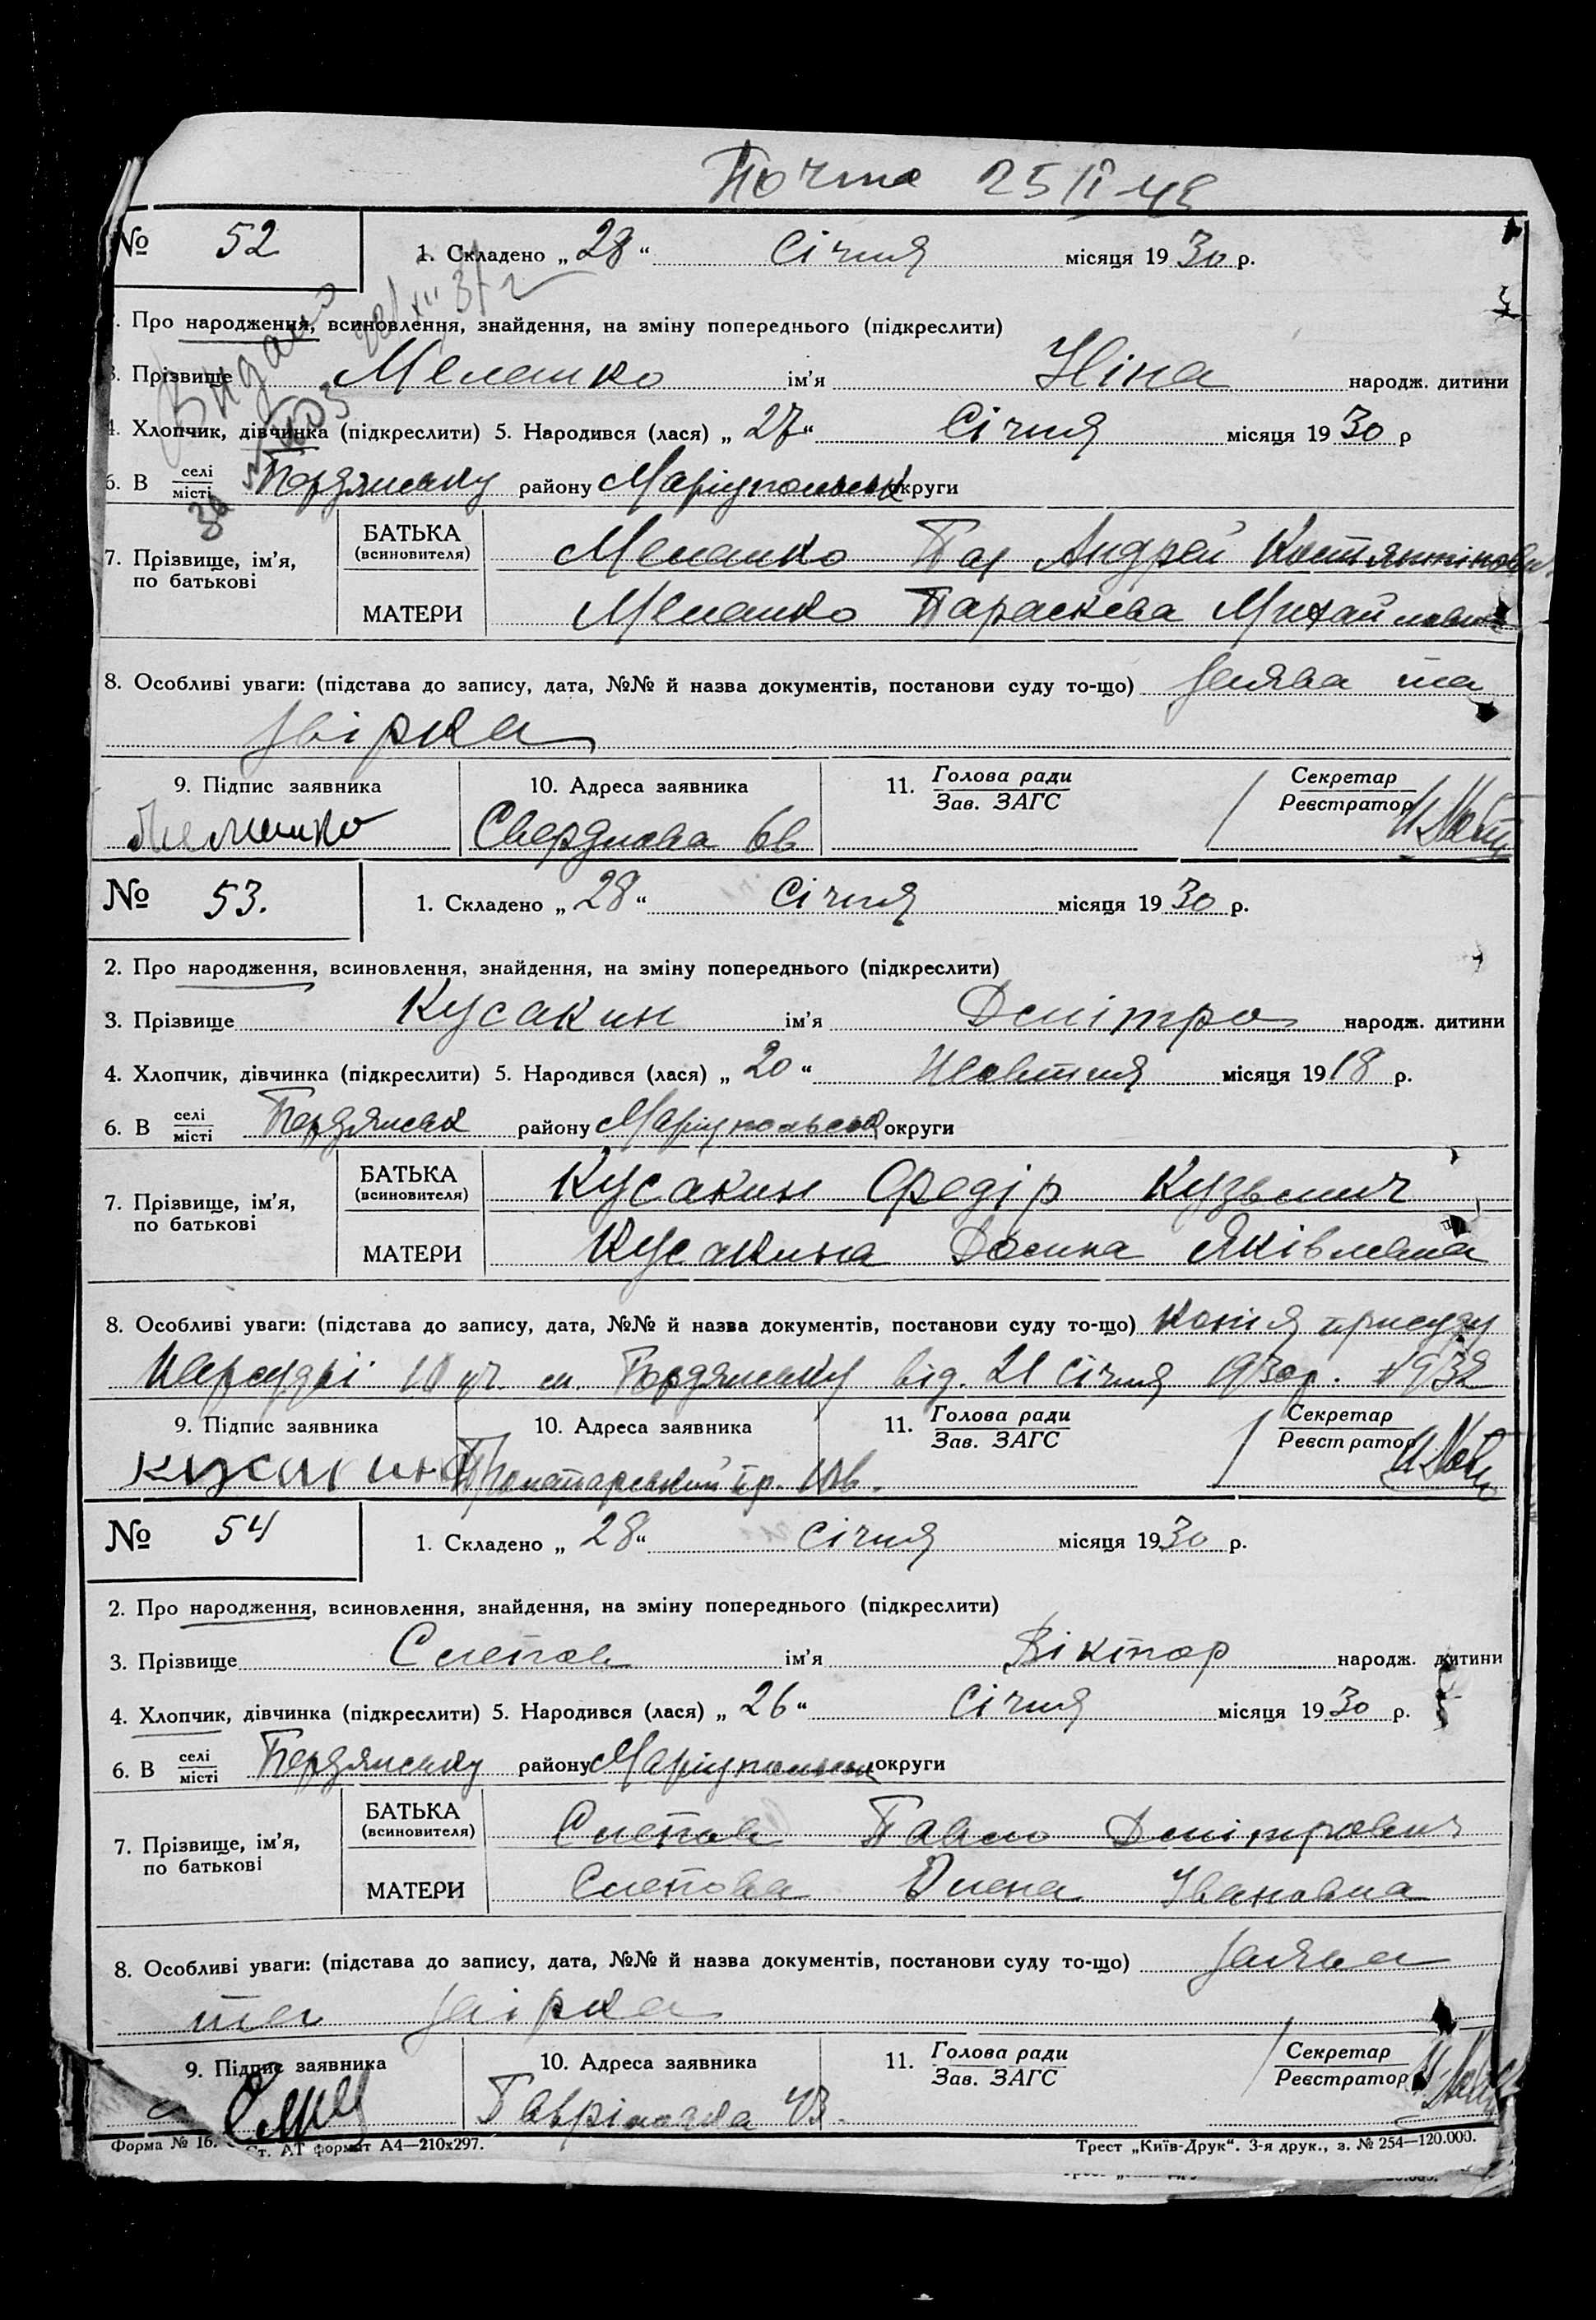 Почта 25/II 48
№ 52
1. Складено „ 28 “ Січня місяця 19 30 р.
Видано
Про народження, всиновлення, знайдення, на зміну попереднього (підкреслити)
3. Прізвище Мелашко ім'я Ніна народж. дитини
4. Хлопчик, дівчинка (підкреслити) 5. Народився (лася) „ 27 “ Січня місяця 19 30 р
6. В селі місті Бердянську району Маріупольськ округи
7. Прізвище, ім'я, по батькові
БАТЬКА (всиновителя) Мелашко Андрей Костянтінович
МАТЕРИ Мелашко Параскева Михайловна
8. Особливі уваги: (підстава до запису, дата, №№ й назва документів, постанови суду то-що) Заява та
звірка
9. Підпис заявника 10. Адреса заявника 11. Голова ради Зав. ЗАГС Секретар Реєстратор
Мелашко Свердлова 66
№ 53.
1. Складено „ 28 “ Січня місяця 19 30 р.
2. Про народження, всиновлення, знайдення, на зміну попереднього (підкреслити)
3. Прізвище Кусакин ім'я Дмітро народж. дитини
4. Хлопчик, дівчинка (підкреслити) 5. Народився (лася) „ 20 “ Жовтня місяця 19 18 р.
6. В селі місті Бердянськ району Маріупольськ округи
7. Прізвище, ім'я, по батькові
БАТЬКА (всиновителя) Кусакин Федір Кузьмич
МАТЕРИ Кусакина Домна Яківлевна
8. Особливі уваги: (підстава до запису, дата, №№ й назва документів, постанови суду то-що) Копія присуду
Нарсудді 10 уч. м. Бердянську від. 21 Січня 1930р. №932
9. Підпис заявника 10. Адреса заявника 11. Голова ради Зав. ЗАГС Секретар Реєстратор
Кусакин Пролетарський пр.
№ 54
1. Складено „ 28 “ Січня місяця 19 30 р.
2. Про народження, всиновлення, знайдення, на зміну попереднього (підкреслити)
3. Прізвище Слепов ім'я Віктор народж. дитини
4. Хлопчик, дівчинка (підкреслити) 5. Народився (лася) „ 26 “ Січня місяця 19 30 р.
6. В селі місті Бердянську району Маріупольськ округи
7. Прізвище, ім'я, по батькові
БАТЬКА (всиновителя) Слепов Павло Дмітрович
МАТЕРИ Слепова Олена Івановна
8. Особливі уваги: (підстава до запису, дата, №№ й назва документів, постанови суду то-що) Заява
та звірка
9. Підпис заявника 10. Адреса заявника 11. Голова ради Зав. ЗАГС Секретар Реєстратор
Форма № 16. Ст. АТ формат А4—210х297. Трест „Київ-Друк“. 3-я друк., з. № 254—120.000.